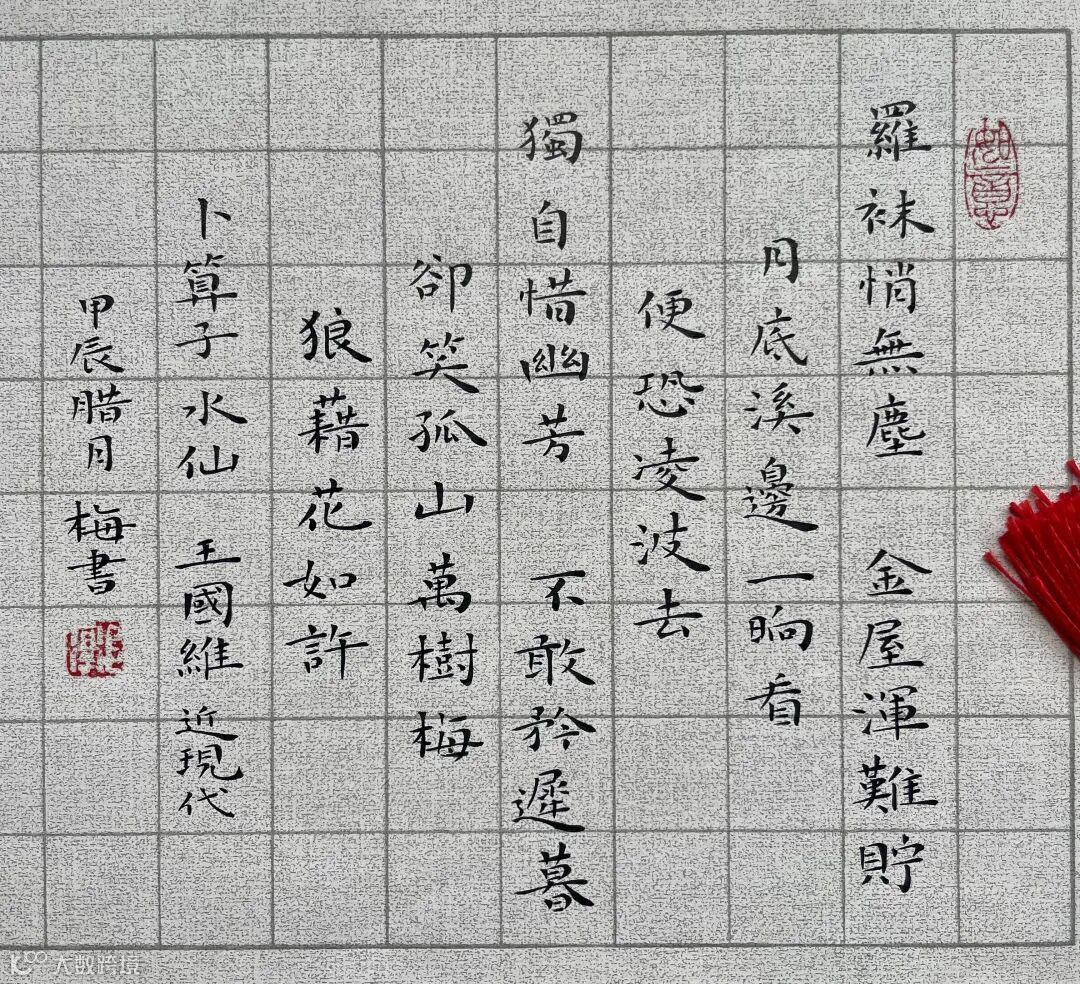 羅袜悄無塵 金屋渾難貯
月底溪邊一晌看
便恐凌波去
獨自惜幽芳 不敢矜遲暮
卻笑孤山萬樹梅
狼藉花如許
卜算子 水仙 王國維 近現代
甲辰腊月 梅書
大数跨境